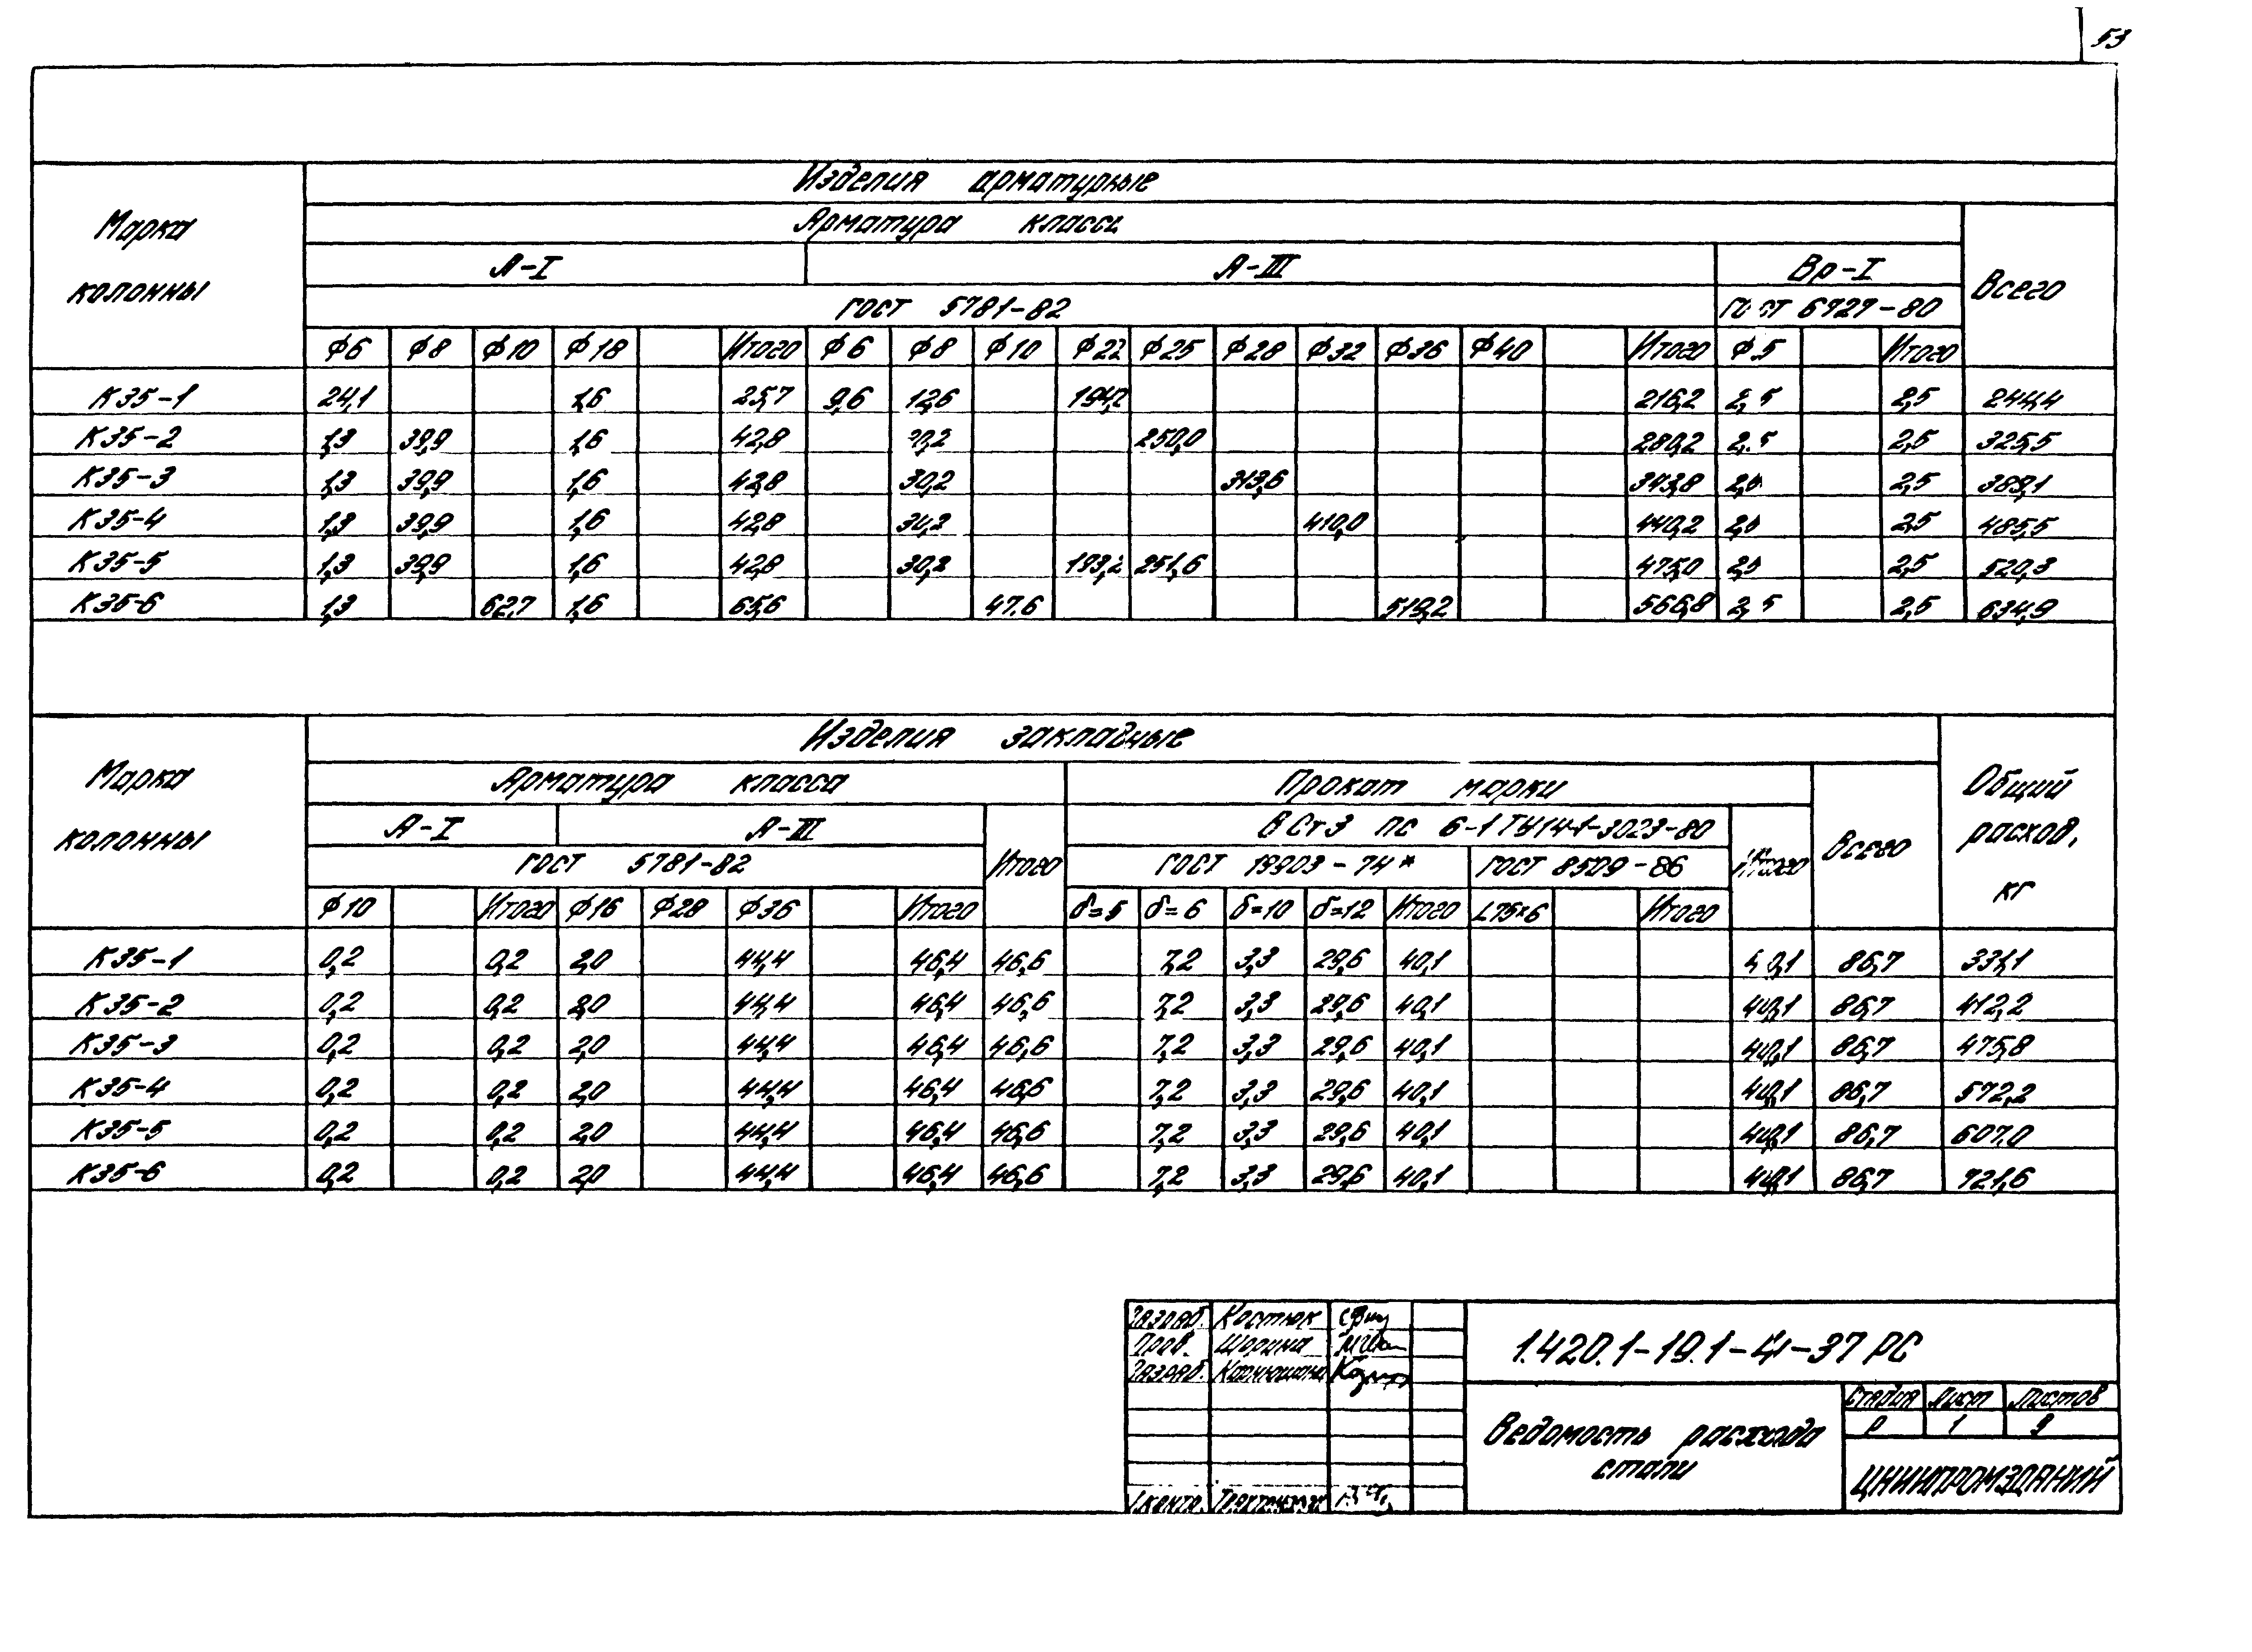 53
Изделия арматурные
Марка колонны
Арматура класса
Всего
А-I А-III Вр-I
ГОСТ 5781-82 ГОСТ 6727-80
ф6 ф8 ф10 ф18 Итого ф6 ф8 ф10 ф22 ф25 ф28 ф32 ф36 ф40 Итого ф5 Итого
К35-1 24,1 1,6 25,7 9,6 12,6 194,2 216,2 2,5 2,5 244,4
К35-2 1,3 39,9 1,6 42,8 30,2 250,0 280,2 2,5 2,5 325,5
К35-3 1,3 39,9 1,6 42,8 30,2 313,6 343,8 2,5 2,5 389,1
К35-4 1,3 39,9 1,6 42,8 30,2 410,0 440,2 2,5 2,5 485,5
К35-5 1,3 39,9 1,6 42,8 30,2 193,2 251,6 475,0 2,5 2,5 520,3
К35-6 1,3 62,7 1,6 65,6 47.6 519,2 566,8 2,5 2,5 634,9
Изделия закладные
Марка колонны
Общий расход, кг
Арматура класса Прокат марки
Всего
А-I А-III Итого ВСт3 пс 6-1 ТУ14-1-3023-80 Итого
ГОСТ 5781-82 ГОСТ 19903-74* ГОСТ 8509-86
ф10 Итого ф16 ф28 ф36 Итого δ=5 δ=6 δ=10 δ=12 Итого L75×6 Итого
К35-1 0,2 0,2 2,0 44,4 46,4 46,6 7,2 3,3 29,6 40,1 40,1 86,7 331,1
К35-2 0,2 0,2 2,0 44,4 46,4 46,6 7,2 3,3 29,6 40,1 40,1 86,7 412,2
К35-3 0,2 0,2 2,0 44,4 46,4 46,6 7,2 3,3 29,6 40,1 40,1 86,7 475,8
К35-4 0,2 0,2 2,0 44,4 46,4 46,6 7,2 3,3 29,6 40,1 40,1 86,7 572,2
К35-5 0,2 0,2 2,0 44,4 46,4 46,6 7,2 3,3 29,6 40,1 40,1 86,7 607,0
К35-6 0,2 0,2 2,0 44,4 46,4 46,6 7,2 3,3 29,6 40,1 40,1 86,7 721,6
Разраб. Костюк
Пров. Шорина
Разраб.
Н.контр.
1.420.1-19.1-4-37 РС
Ведомость расхода
стали
Стадия Лист Листов
Р 1 9
ЦНИИПРОМЗДАНИЙ